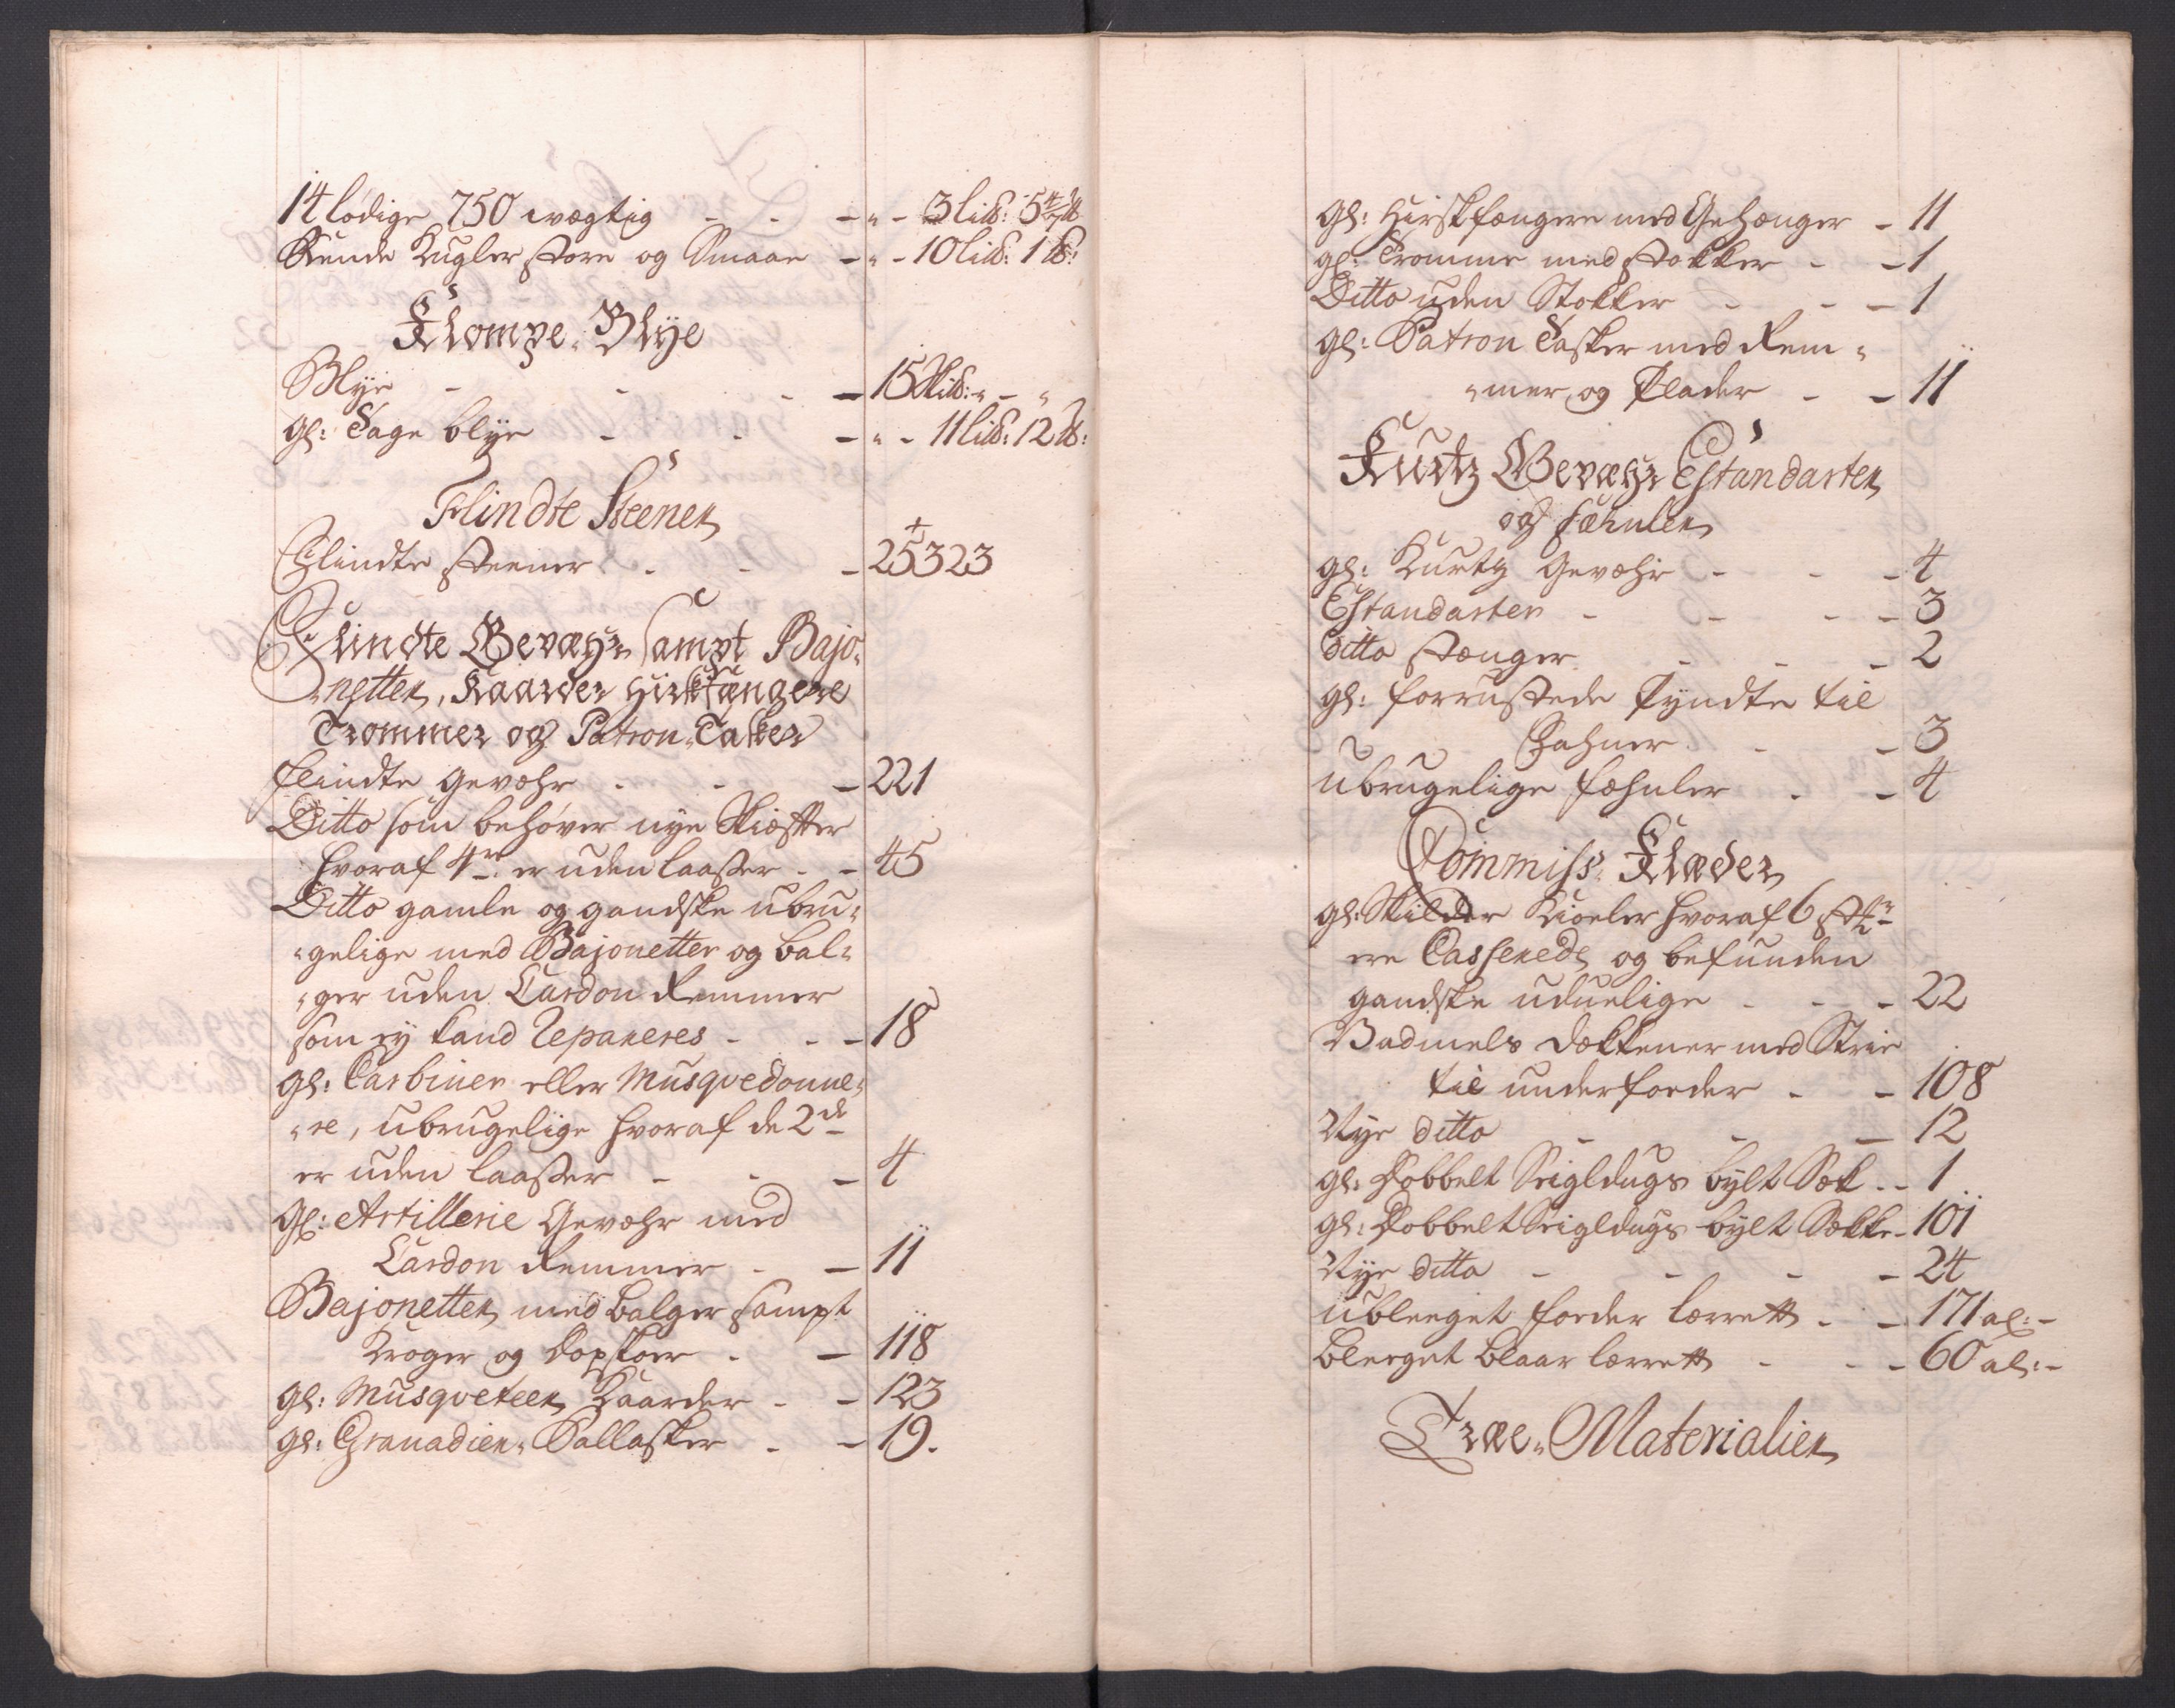 14 lødige 750 wægtig - - - " - 3 lise: 5 4/7 lb
Runde Kugler store og Smaae - " - 10 lise: 1 lb:
Klompe-Blye
Blye - - - 15 Skise: " - "
gl: Tage blye - - - " - 11 lise: 12 lb:
Flindte Steener
Flindte steener - - - 25323
Flindte Gevæhr sampt Bajo-
netter, Kaarder Hirskfængere
Trommer og Patron-Tasker
flindte gevæhr - - - 221
Ditto som behøver nye Skiæffter
hvoraf 4re: er uden laasser - - 45
Ditto gamle og gandske ubru-
gelige med Bajonetter og bal-
ger uden Cardon Remmer
som ey kand repareres - - - 18
gl: Carbiner eller Musqvedonne-
re, ubrugelige hvoraf de 2de
er uden laasser - - - 4
gl: Artillerie gevæhr med
Cardon Remmer - - 11
Bajonetter med balger sampt
Kroger og dopskoer - - 118
gl: Musqveteer Kaarder - - 123
gl: Granadier-Pallasker - - 19.
gl: Hirskfængere med Gehænger - 11
gl: Tromme med stokker - - 1
Ditto uden Stokker - - - 1
gl: Patron Tasker med Rem-
mer og Plader - - 11
Kurtz Gevæhr Estandarter
og fæhnler
gl: Kurtz gevæhr - - - 4
Estandarter - - - - 3
ditto stænger - - - 2
gl: forrustede Pyndte til
Fahner - - 3
ubrugelige fæhnler - - 4
Commiss-Klæder
gl: Skilder Kioeler hvoraf 6 stkr
ere Casserede og befunden
gandske uduelige - - - 22
Vadmels Dækkener med Strie
til underfoeder - - 108
Nye ditto - - - 12
gl: Dobbelt Seigldugs bylt Sæk - - 1
gl: Dobbelt Seigldugs bylt Sække - 101
Nye ditto - - - - 24
ubleeget foeder lærrett - - 171 al: -
bleeget blaar lærrett - - - 60 al: -
Træe-Materialier